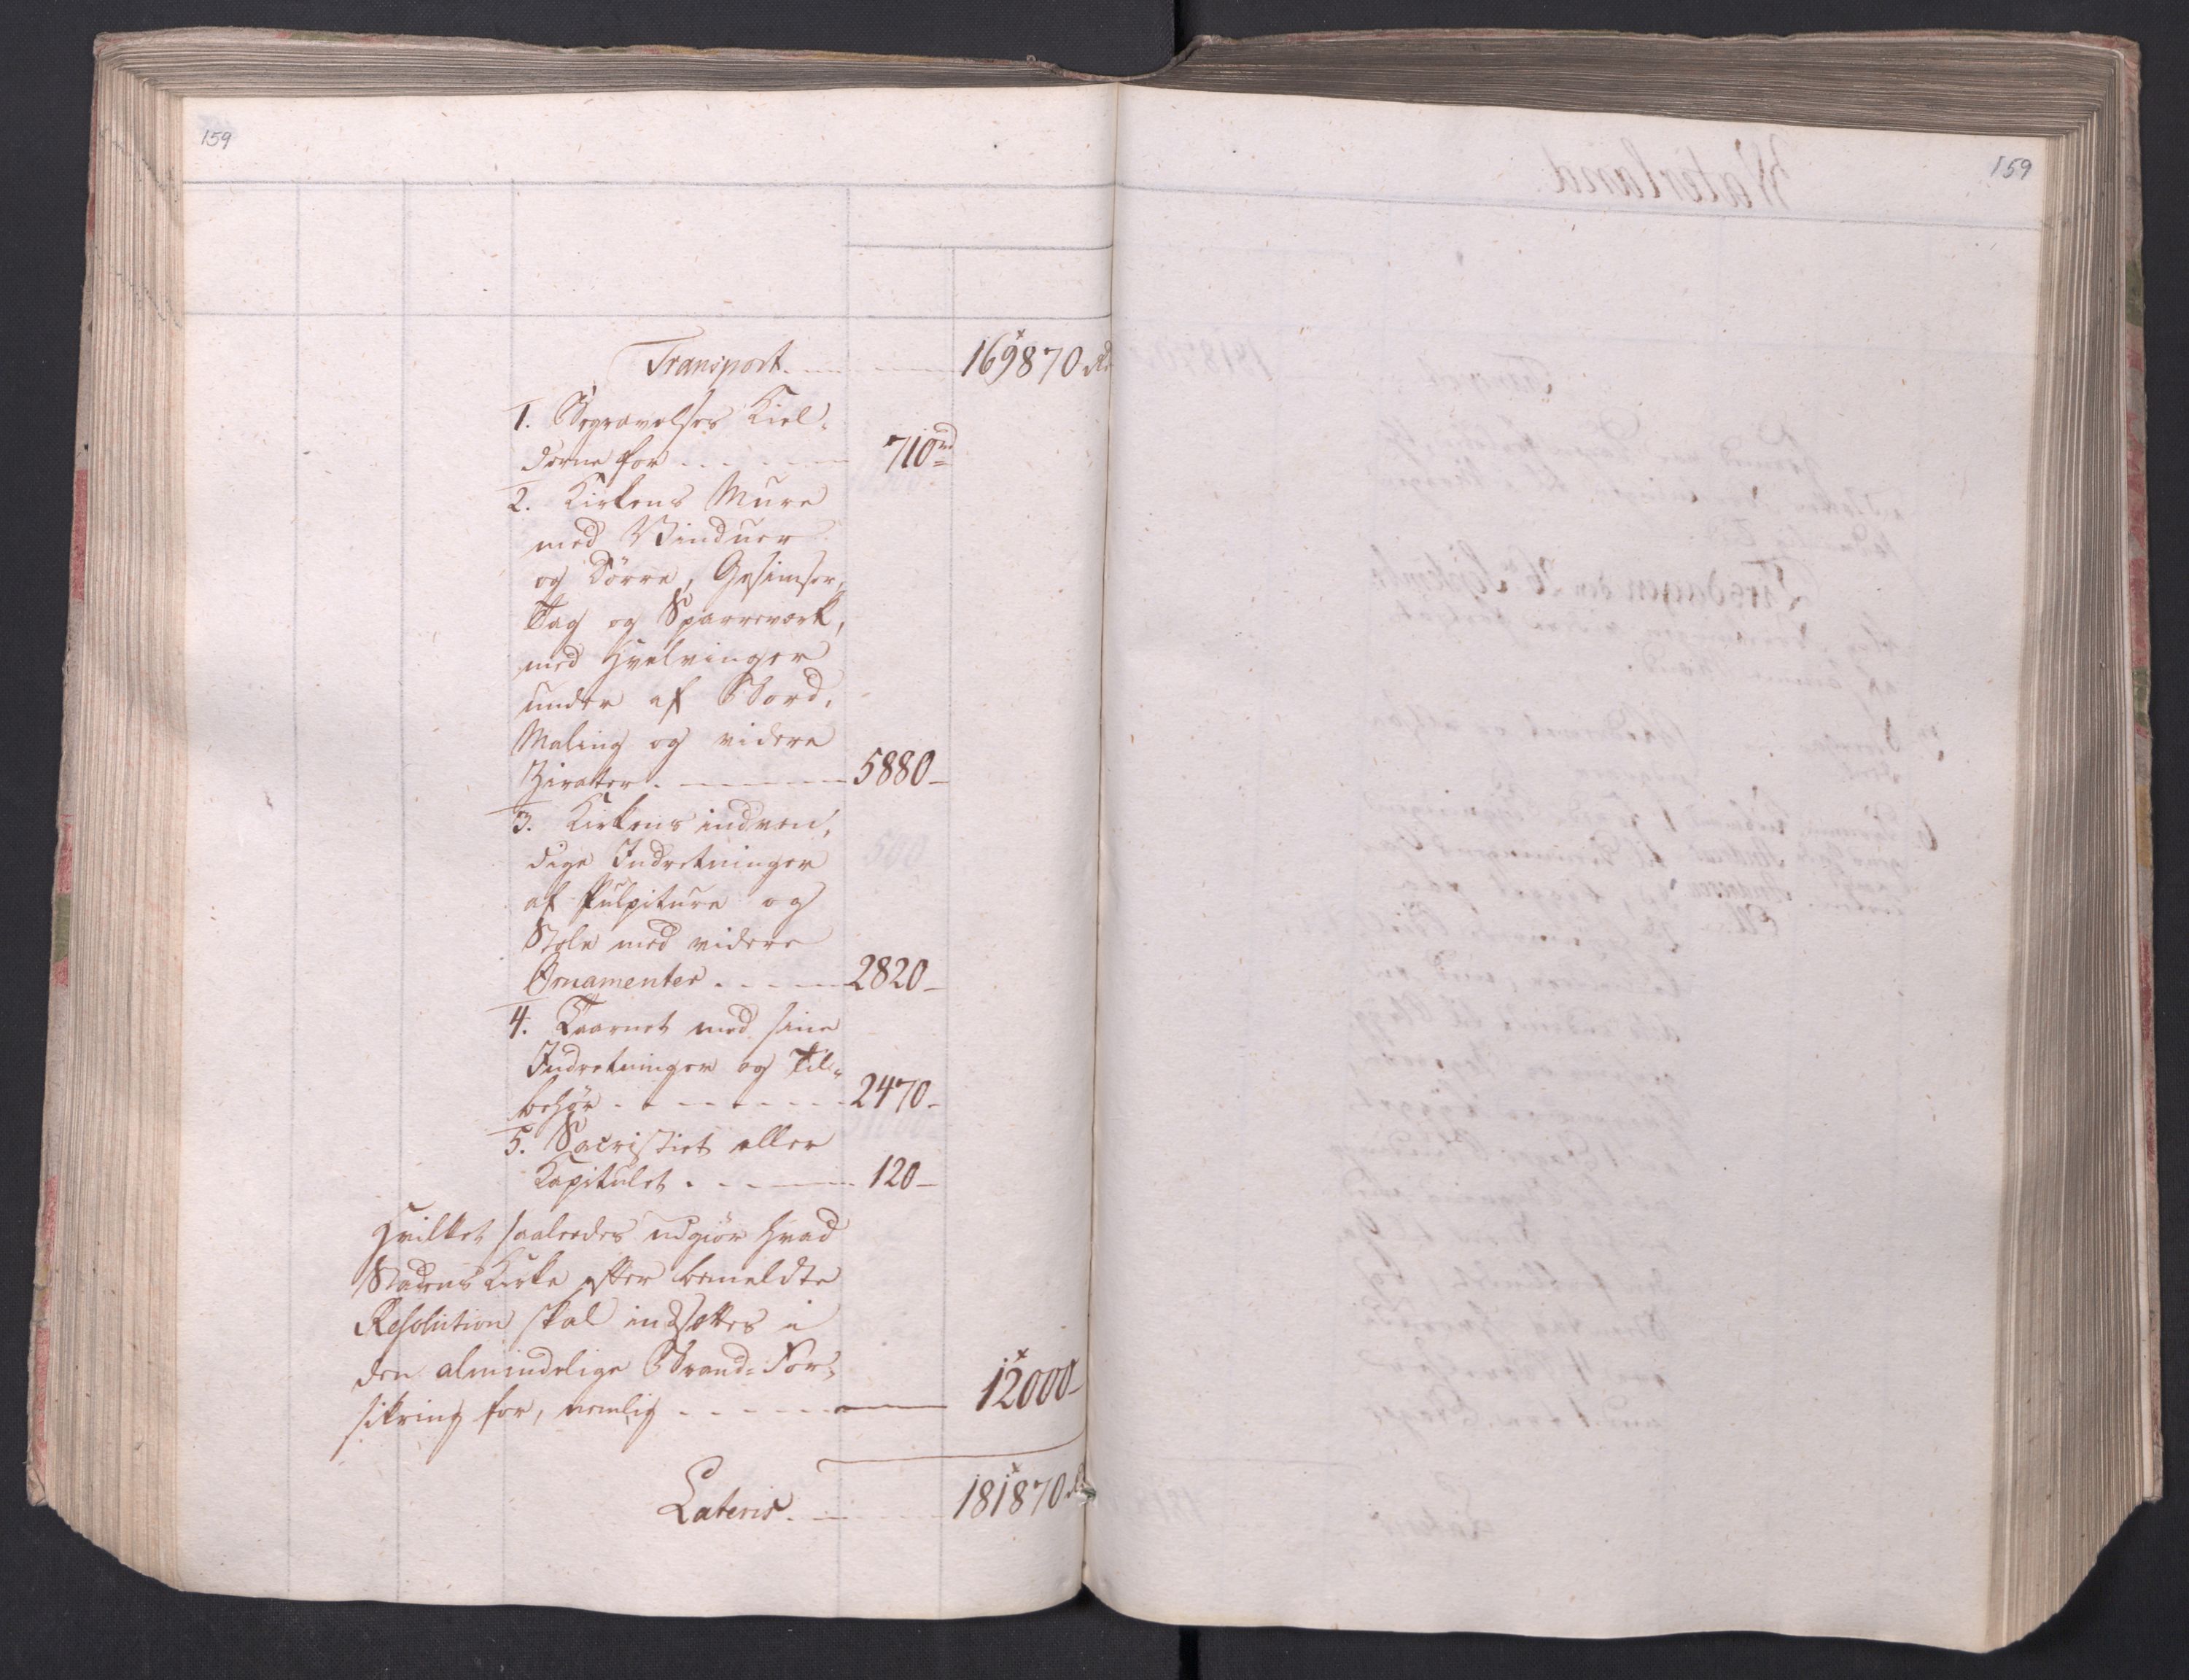 159
Transport. 169870 Rd
1. Begravelses Kiel-
derne for 710 rd
2. Kirkens Mure
med Vinduer
og Dörre, Gesimser,
Tag og Sparreverk,
med Hvelvinger
under af Bord,
Maling og videre
Zirater. 5880
3. Kirkens indven-
dige Indretninger
af Pulpiture og
Stole med videre
Ornamenter 2820
4. Taarnet med sine
Indretninger og Til-
behör 2470
5. Sacristiet eller
Kapitulet 120
Hvilket saaledes udgiör hvad
Stadens Kirke efter bemeldte
Resolution skal indsættes i
den almindelige Brand-For-
sikring for, nemlig 12000
Lateris. 181870 Rd
159